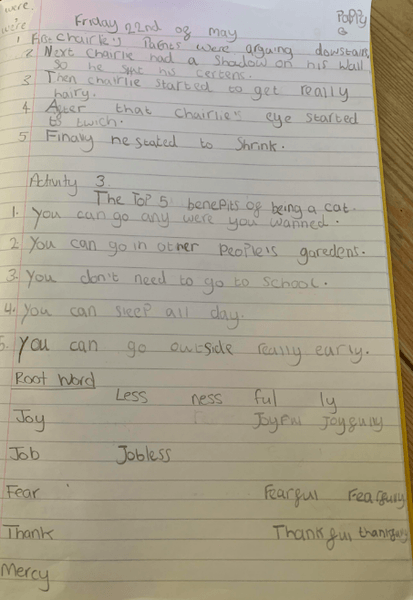 were.
were
Friday 22nd of may
Poppy
1 First chairlie's Parents were arguing downstairs
2 Next Chairlie had a shadow on his wall
so he shut his certens.
3 Then chairlie started to get really
hairy.
4 After that Chairlie's eye started
to twich.
5 Finally he stated to Shrink.
Activity 3
The Top 5 benefits of being a cat.
1. you can go any were you wanned.
2 You can go in other People's goredens.
3. You don't need to go to School.
4. You can sleep all day.
5. You can go outside really early.
Root Word
Less ness ful ly
Joy Joyful Joyfully
Job Jobless
Fear Fearful Fearfully
Thank Thankful thankfully
Mercy